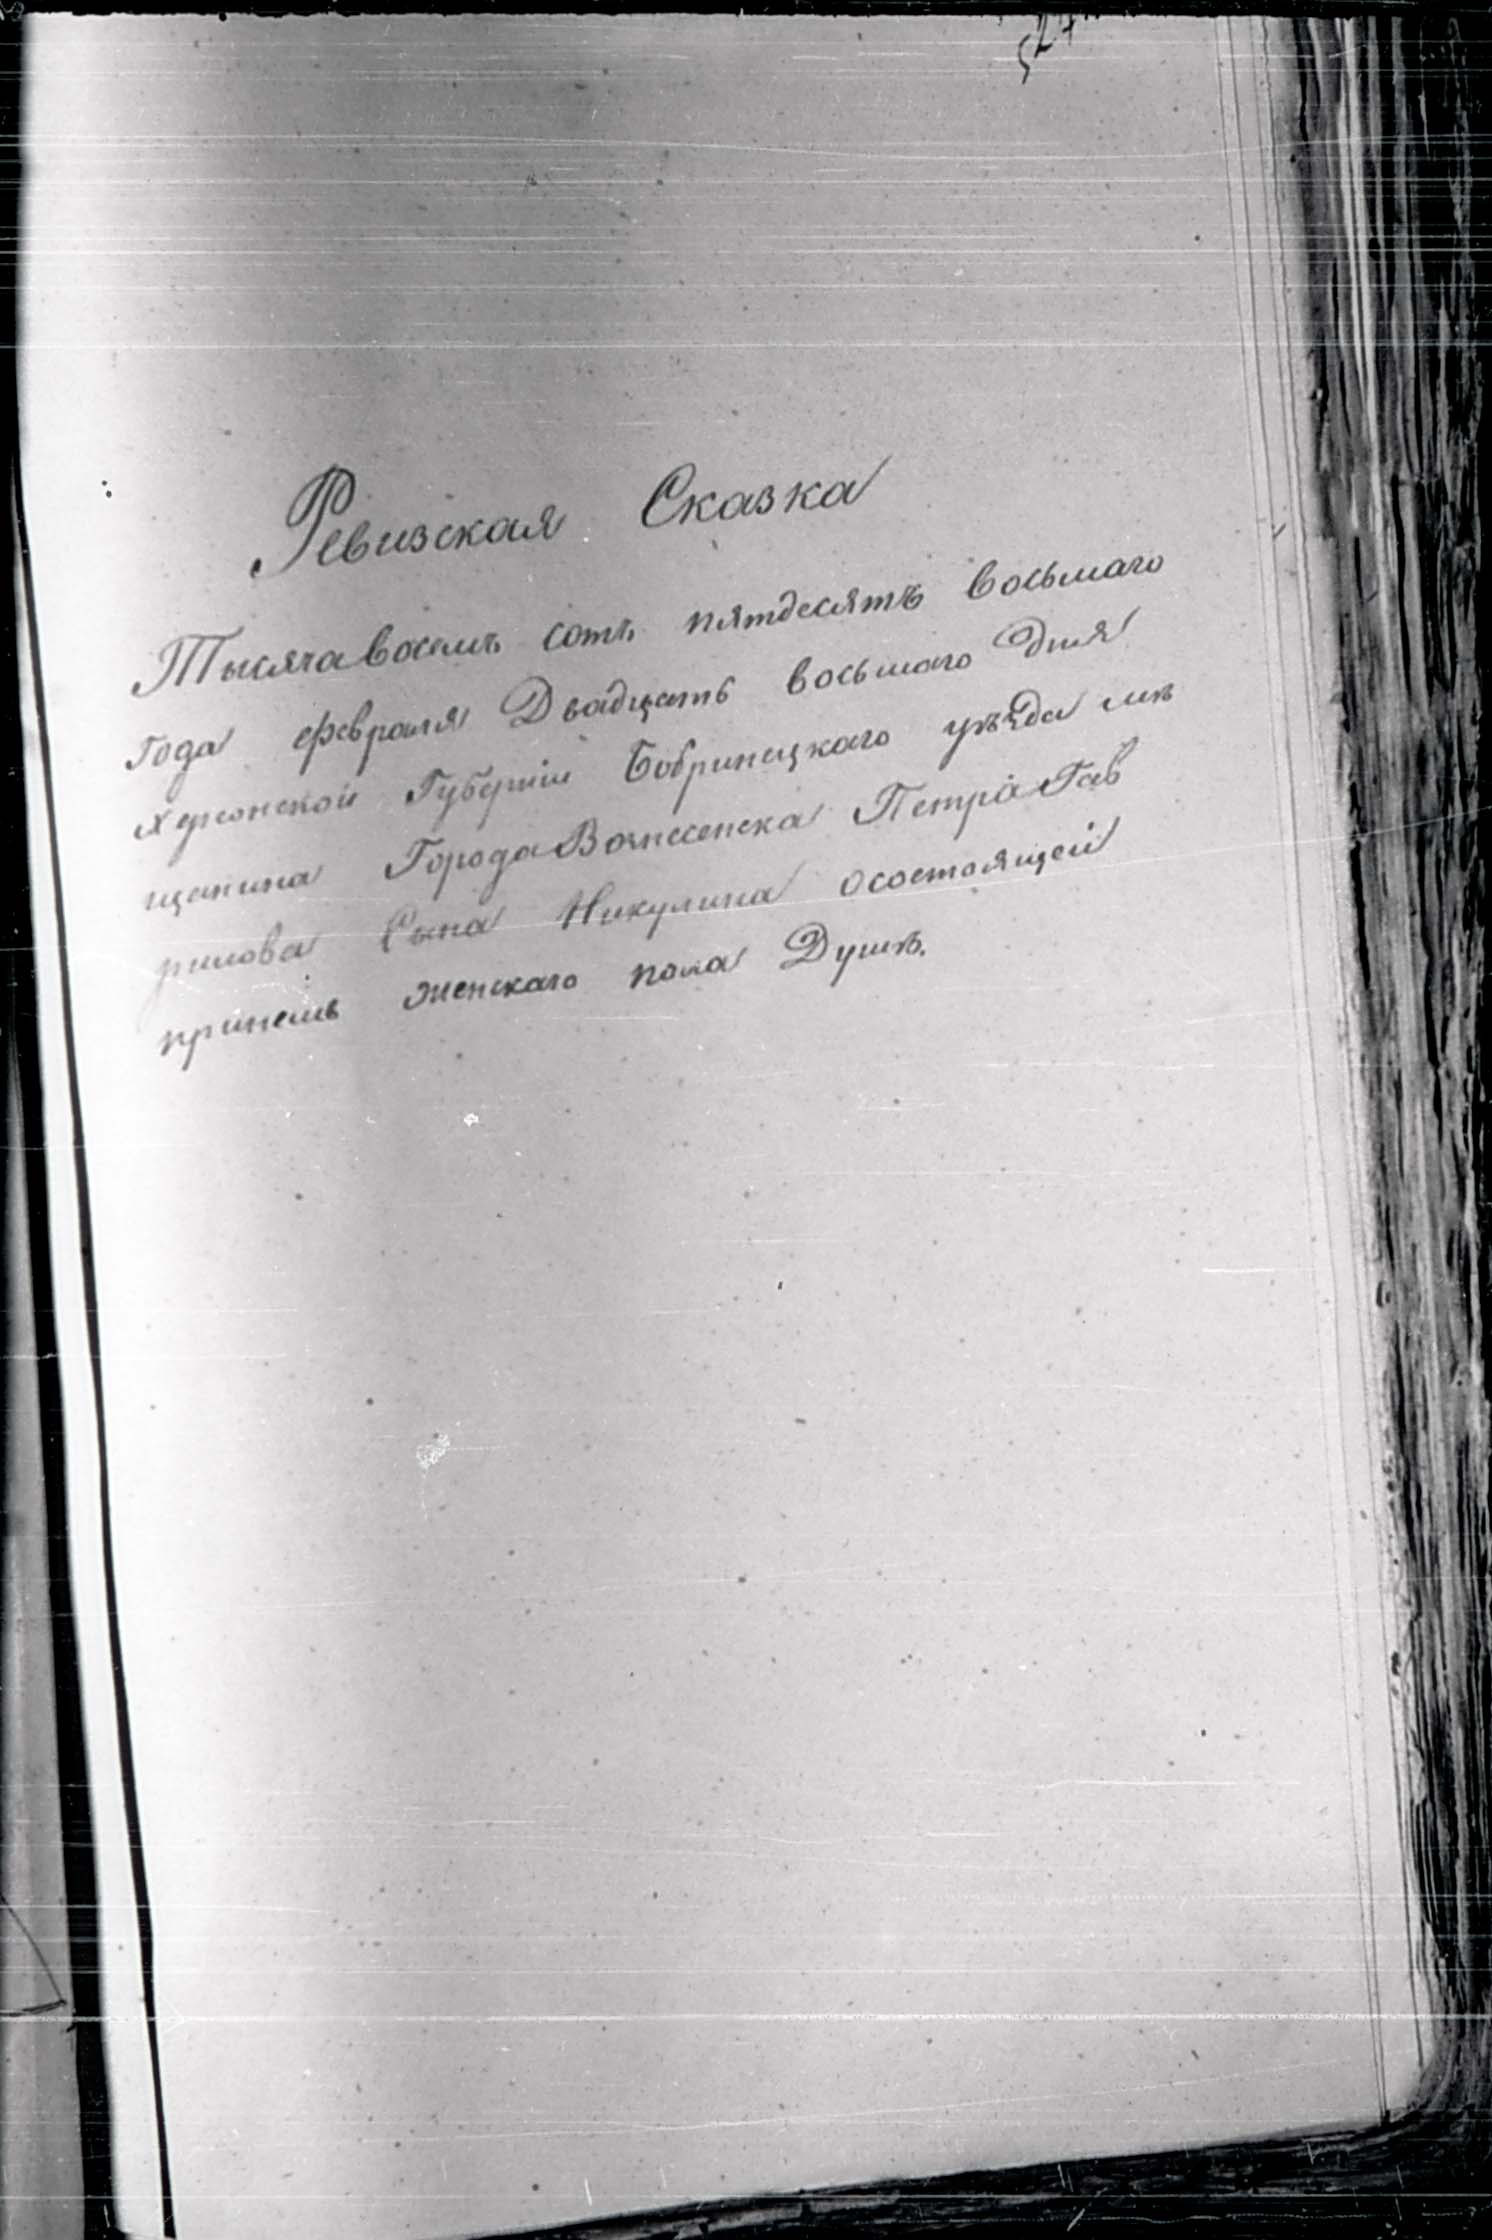 Ревизская Сказка
Тысяча восемъ сотъ пятдесятъ восьмаго
года февраля Двадцать восьмаго Дня
Херсонской Губерніи Бобринецкаго уѣзда мѣ
щанина Города Вознесенска Петра Гав
рилова Сына Никулина осостоящей
принемъ женскаго пола Душѣ.